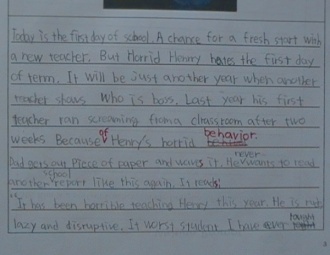 Today is the first day of school. A chance for a fresh start with
a new teacher. But Horrid Henry hates the first day
of term. It will be just another year when another
teacher shows who is boss. Last year his first
teacher ran screaming from a classroom after two
weeks Because of Henry's horrid behavior.
Dad gets out Piece of paper and waves it. He never wants to read
another school report like this again. It reads:
"It has been horrible teaching Henry this year. He is rude
lazy and disruptive. It worst student I have ever taught